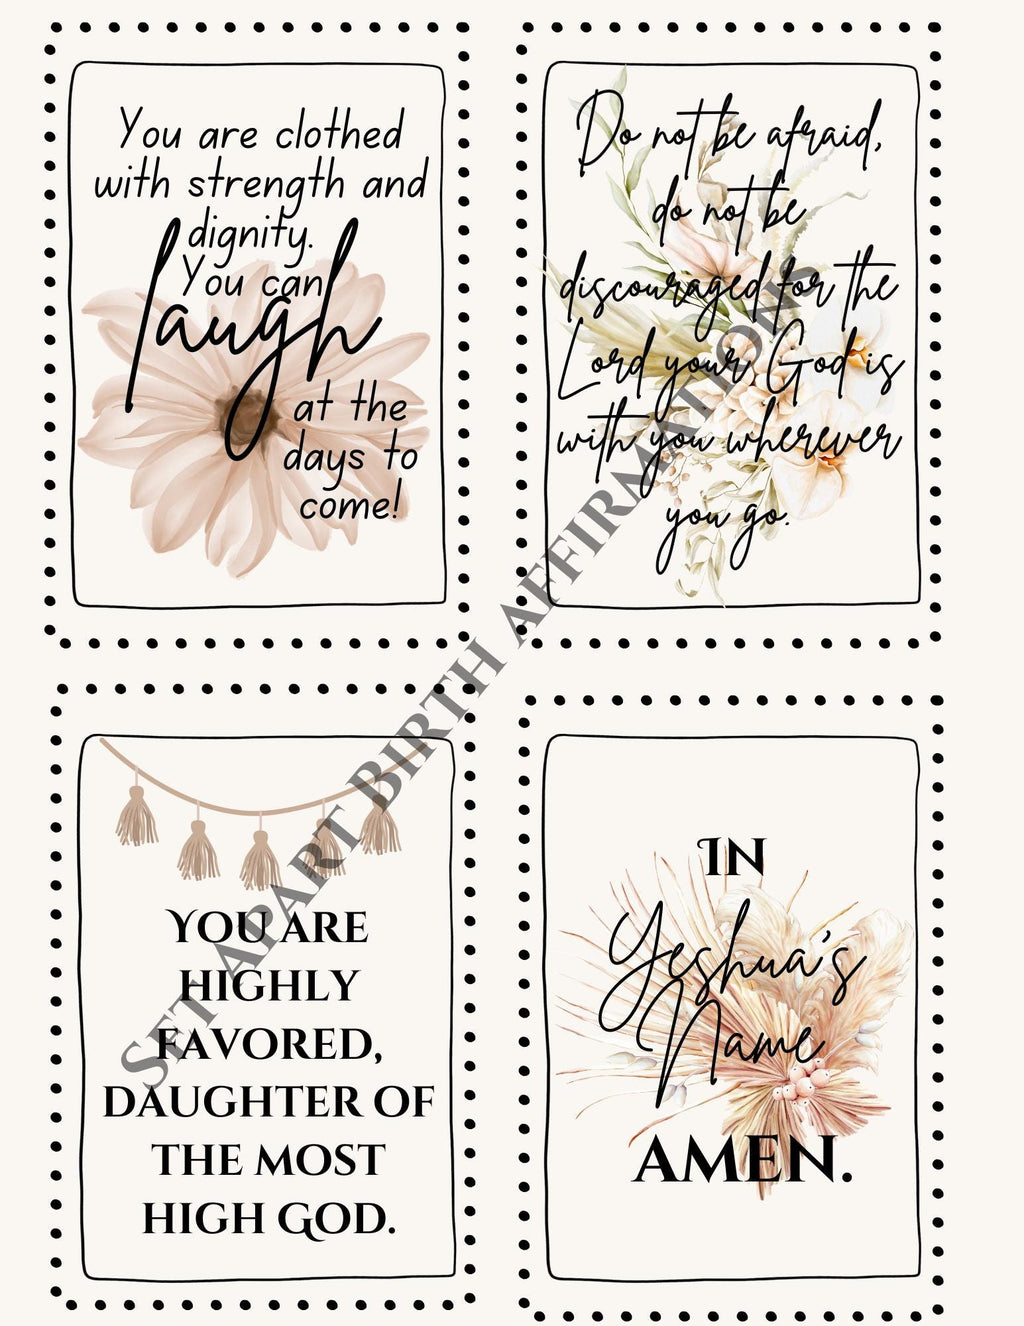 You are clothed
with strength and
dignity.
You can
laugh
at the
days to
come!
Do not be afraid,
do not be
discouraged for the
Lord your God is
with you wherever
you go.
YOU ARE
HIGHLY
FAVORED,
DAUGHTER OF
THE MOST
HIGH GOD.
IN
Yeshua's
Name
AMEN.
SET APART BIRTH AFFIRMATIONS